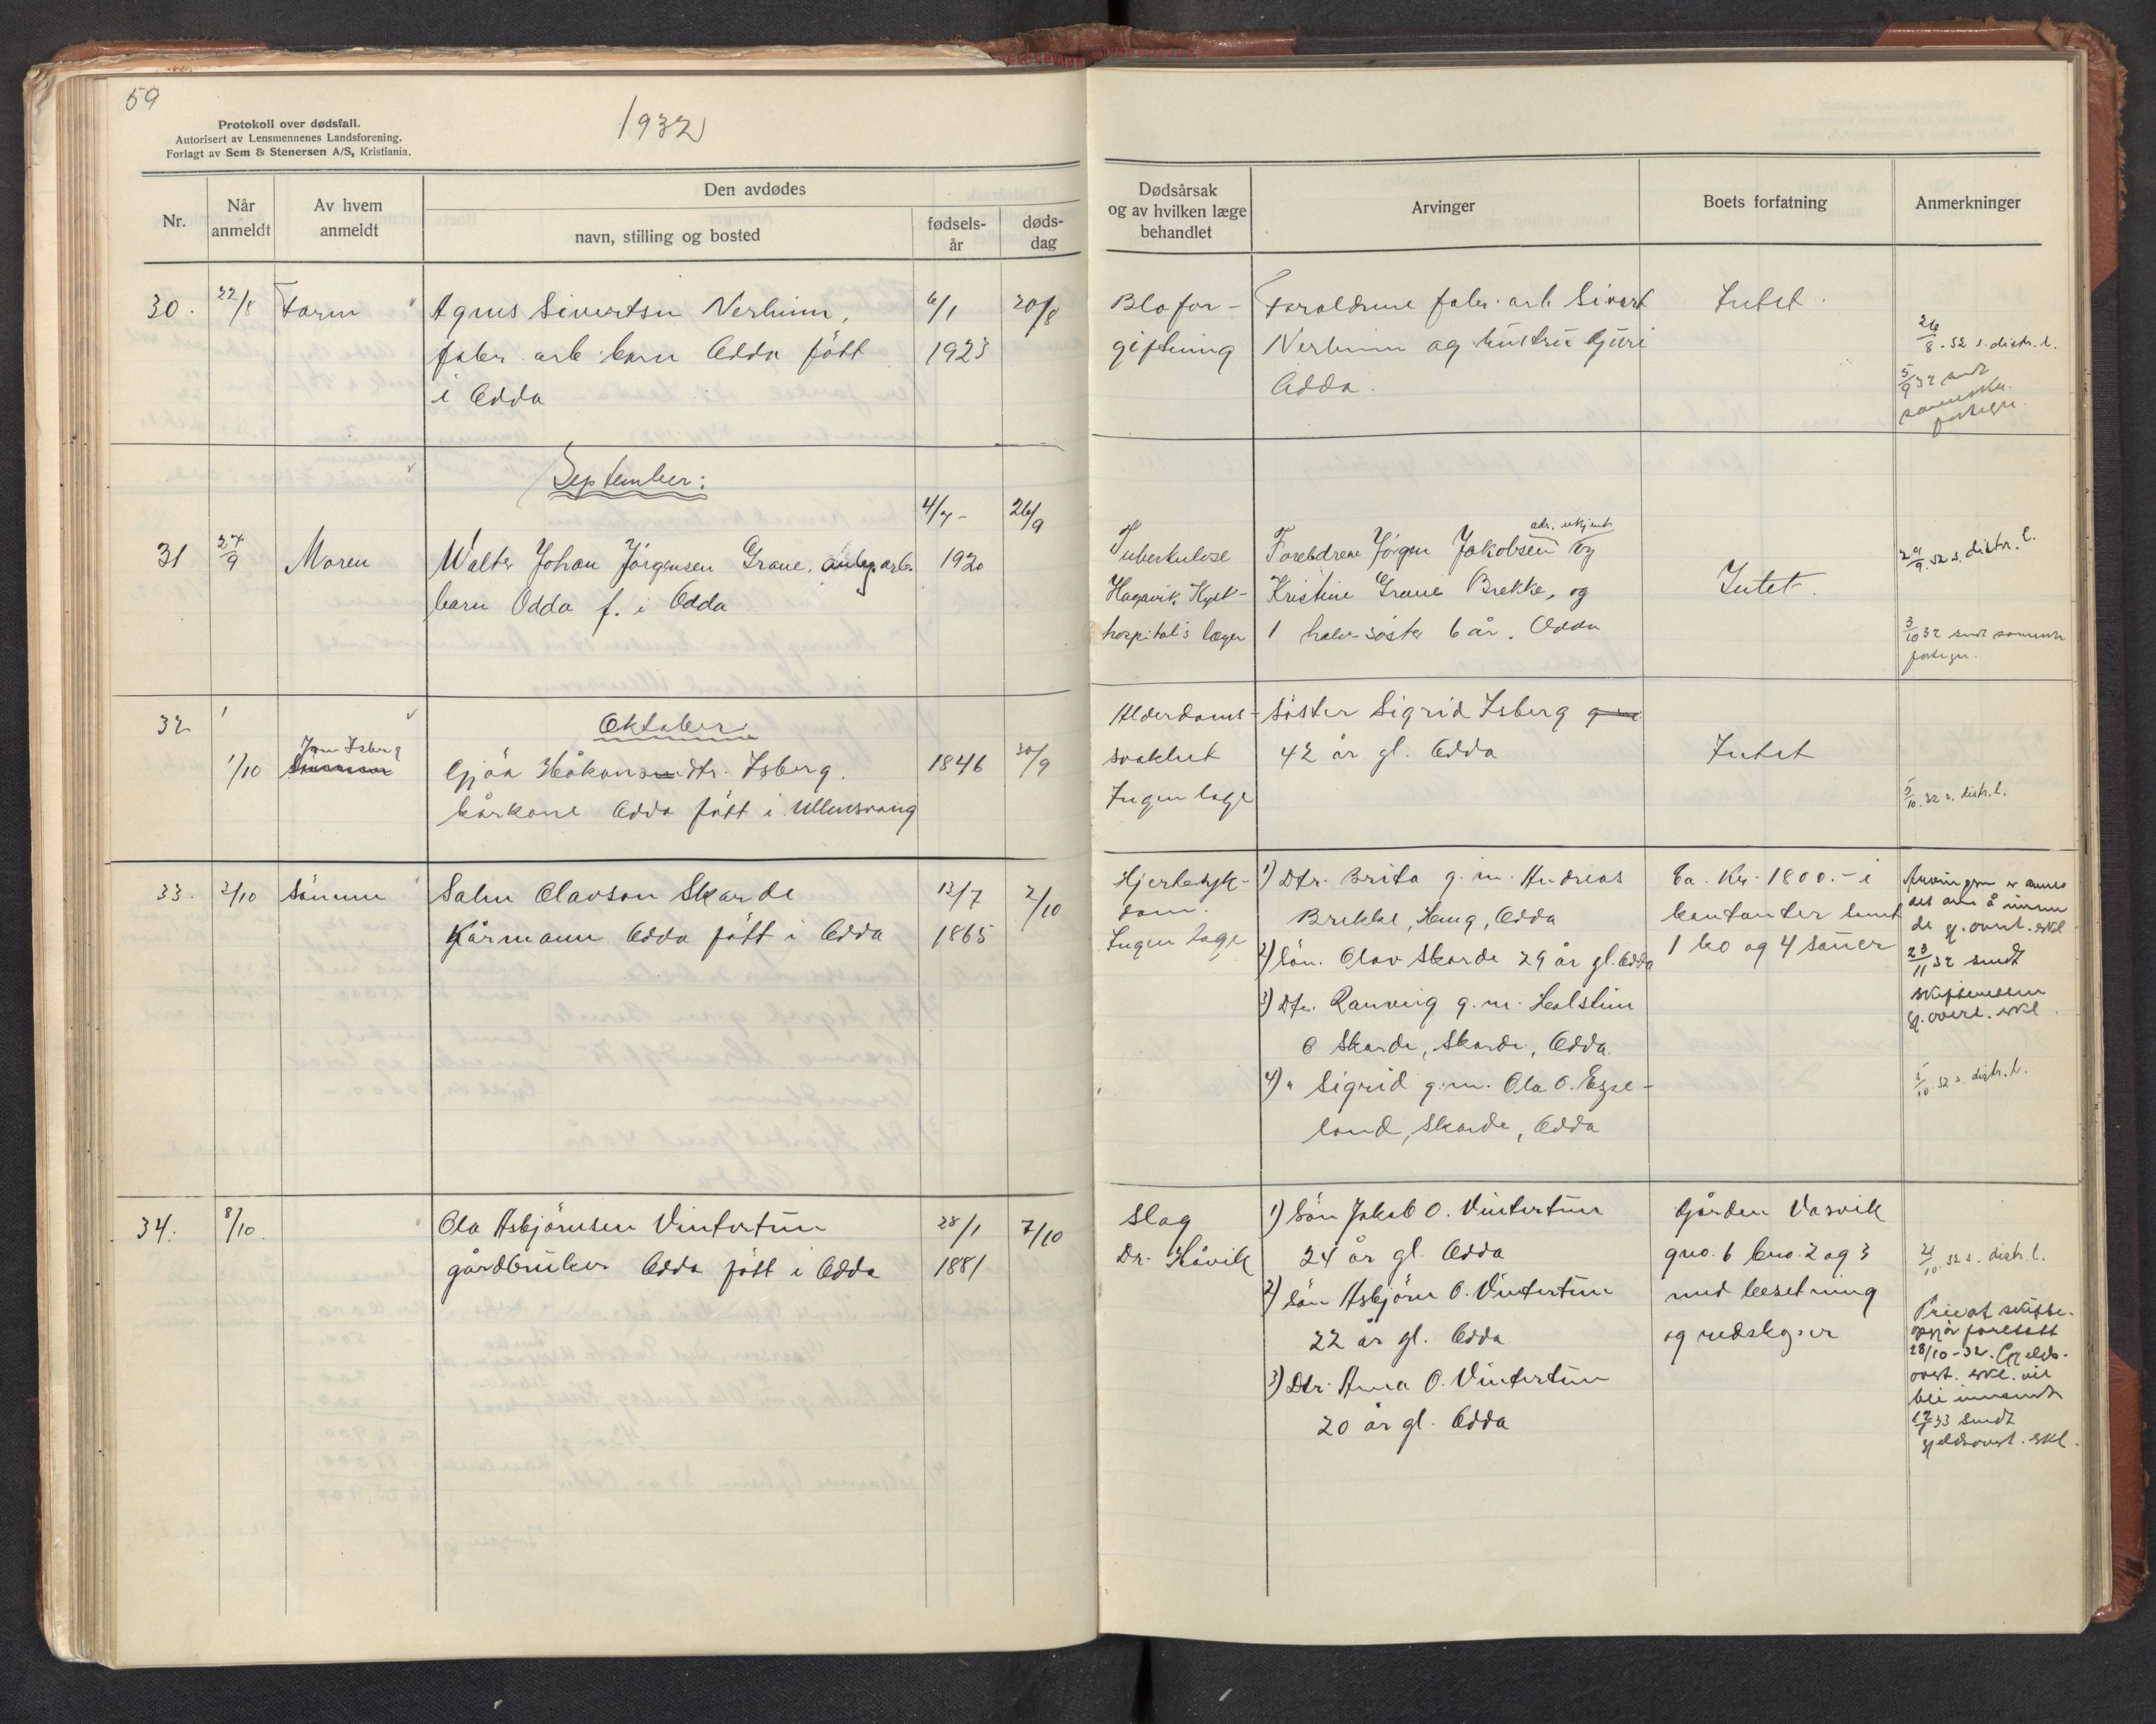 59
1932
Protokoll over dødsfall.
Autorisert av Lensmennenes Landsforening.
Forlagt av Sem & Stenersen A/S, Kristiania.
Nr.
Når anmeldt
Av hvem anmeldt
Den avdødes
navn, stilling og bosted
fødsels-år
døds-dag
Dødsårsak og av hvilken læge behandlet
Arvinger
Boets forfatning
Anmerkninger
30. 22/8 Farm Agnes Sivertsen Nerheim, 6/1 20/8
fabr. arb. barn Odda født 1923
i Odda
Blofor-
giftning
Foreldrene fabr. arb. Sivert
Nerheim og hustru Guri
Odda.
Intet.
26/8.32 s. distr. l.
5/9 32 sendt
September:
31 27/9 Moren Walter Johan Jörgensen Grane, anleg. arb. 4/7- 1920 26/9
barn Odda f. i Odda
Tuberkulose
Hagavik Kyst-
hospital's læger
adr. ukjent
Foreldrene Jörgen Jakobsen og
Kristine Grane Brekke, og
1 halv-søster 6 år. Odda
Intet.
29/9.32 s. distr. l.
3/10 32 sendt
Oktober:
32 1/10 Jon Isberg
Gjöa Håkonsdtr. Isberg. 1846 30/9
kårkone Odda født i Ullensvang
Alderdoms-
svakhet
Ingen læge
Søster Sigrid Isberg
42 år gl. Odda
Intet
5/10.32 s. distr. l.
33. 3/10 Sönnen Salm Olavson Skarde 13/7 2/10
Kårmann Odda født i Odda 1865
Hjertesyk-
dom.
Ingen læge
1) Dtr. Brita g. m. Andreas
Brekke, Haug, Odda
2) Sön. Olav Skarde 29 år gl. Odda
3) Dtr. Ranveig g. m. Halstein
O Skarde, Skarde, Odda
4) " Sigrid g. m. Ola O. Espe-
land, Skarde, Odda
Ca. Kr. 1800.- i
kontanter samt
1 ko og 4 sauer
23/11 32 sendt
5/10.32 s. distr. l.
34. 8/10. Ola Asbjörnsen Vintertun 28/1 7/10
gårdbruker Odda født i Odda 1881
Slag
Dr. Håvik
1) Sön Jakob O. Vintertun
24 år gl. Odda
2) Sön Asbjörn O. Vintertun
22 år gl. Odda
3) Dtr. Anna O. Vintertun
20 år gl. Odda
Gården Vasvik
gno. 6 bno. 2 og 3
med besetning
og redskaper
10.32 s. distr. l.
Privat skifte-
opgjör foretatt
28/10-32. Gjelds-
overt. erkl. vil
bli innsendt
33 sendt
gjeldsovert. erkl.